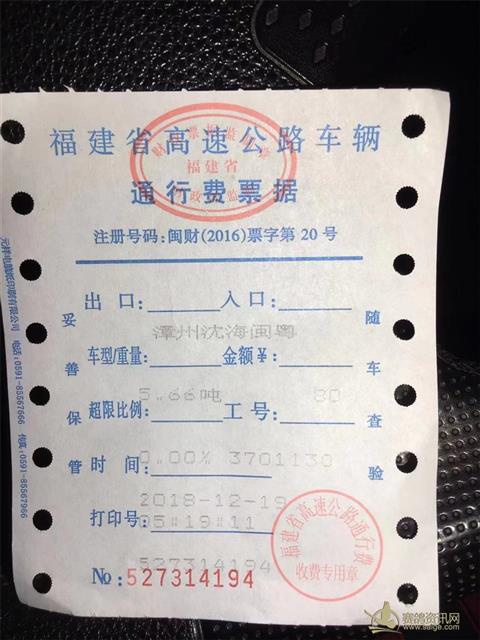 福建省高速公路车辆
通行费票据
福建省
注册号码:闽财(2016)票字第 20 号
出 口: 入口:
漳州沈海闽粤
车型/重量: 金额¥:
5.66吨 80
超限比例: 工号:
0.00% 3701130
时 间:
2018-12-19
05:19:11
打印号:
527314194
No:527314194
妥善保管
随车查验
福建省高速公路通行费
收费专用章
电话:0591-85567666
0591-85567966
赛鸽资讯网
www.saige.com